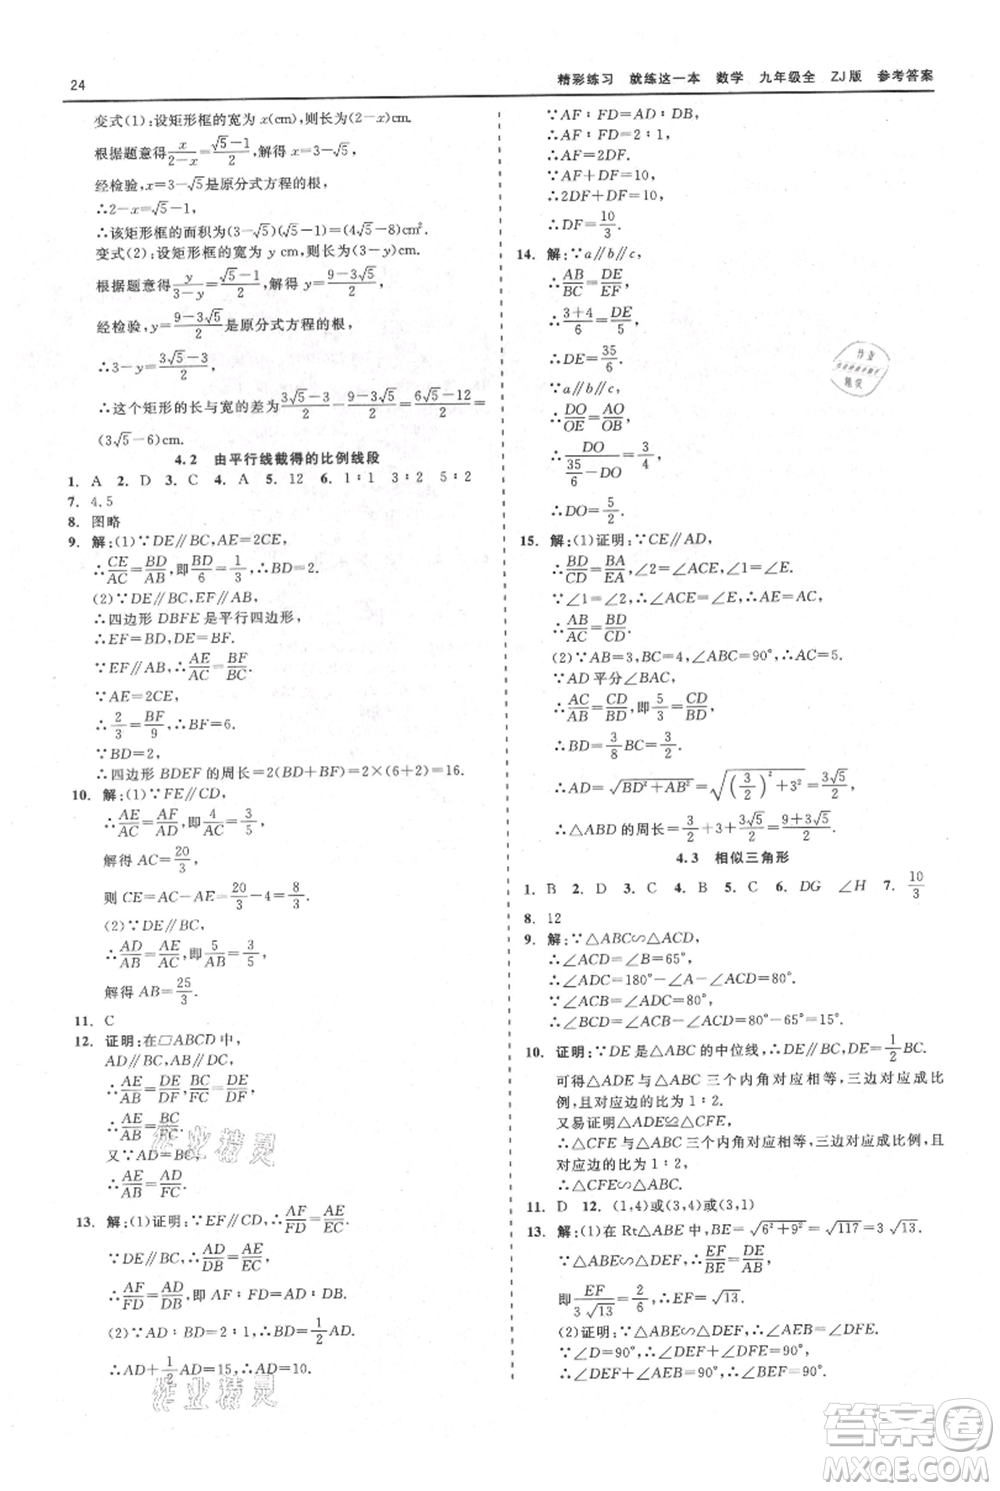 24
精彩练习 就练这一本 数学 九年级全 ZJ版 参考答案
变式(1):设矩形框的宽为x(cm),则长为(2−x)cm.
根据题意得x/(2−x)=(√5−1)/2,解得x=3−√5,
经检验,x=3−√5是原分式方程的根,
∴2−x=√5−1,
∴该矩形框的面积为(3−√5)(√5−1)=(4√5−8)cm².
变式(2):设矩形框的宽为y cm,则长为(3−y)cm.
根据题意得y/(3−y)=(√5−1)/2,解得y=(9−3√5)/2,
经检验,y=(9−3√5)/2是原分式方程的根,
∴3−y=(3√5−3)/2,
∴这个矩形的长与宽的差为(3√5−3)/2−(9−3√5)/2=(6√5−12)/2=
(3√5−6)cm.
4.2 由平行线截得的比例线段
1. A 2. D 3. C 4. A 5. 12 6. 1∶1 3∶2 5∶2
7. 4.5
8. 图略
9. 解:(1)∵DE∥BC,AE=2CE,
∴CE/AC=BD/AB,即BD/6=1/3,∴BD=2.
(2)∵DE∥BC,EF∥AB,
∴四边形DBFE是平行四边形,
∴EF=BD,DE=BF.
∵EF∥AB,∴AE/AC=BF/BC.
∵AE=2CE,
∴2/3=BF/9,∴BF=6.
∵BD=2,
∴四边形BDEF的周长=2(BD+BF)=2×(6+2)=16.
10. 解:(1)∵FE∥CD,
∴AE/AC=AF/AD,即4/AC=3/5,
解得AC=20/3,
则CE=AC−AE=20/3−4=8/3.
(2)∵DE∥BC,
∴AD/AB=AE/AC,即5/AB=3/5,
解得AB=25/3.
11. C
12. 证明:在▱ABCD中,
AD∥BC,AB∥CD,
∴AE/AF=DE/DF,BC/DF=DE/DF,
∴AE/AF=BC/DF.
又∵AD=BC,
∴AE/AF=AD/DF.
13. 解:(1)证明:∵EF∥CD,∴AF/FD=AE/EC.
∵DE∥BC,∴AD/DB=AE/EC,
∴AF/FD=AD/DB,即AF∶FD=AD∶DB.
(2)∵AD∶BD=2∶1,∴BD=1/2AD,
∴AD+1/2AD=15,∴AD=10.
∵AF∶FD=AD∶DB,
∴AF∶FD=2∶1,
∴AF=2DF.
∵AF+DF=10,
∴2DF+DF=10,
∴DF=10/3.
14. 解:∵a∥b∥c,
∴AB/BC=DE/EF,
∴(3+4)/6=DE/5,
∴DE=35/6.
∵a∥b∥c,
∴DO/OE=AO/OB,
∴DO/(35/6−DO)=3/4,
∴DO=5/2.
15. 解:(1)证明:∵CE∥AD,
∴BD/CD=BA/EA,∠2=∠ACE,∠1=∠E.
∵∠1=∠2,∴∠ACE=∠E,∴AE=AC,
∴AB/AC=BD/CD.
(2)∵AB=3,BC=4,∠ABC=90°,∴AC=5.
∵AD平分∠BAC,
∴AC/AB=CD/BD,即5/3=CD/BD,
∴BD=3/8BC=3/2.
∴AD=√(BD²+AB²)=√((3/2)²+3²)=3√5/2,
∴△ABD的周长=3/2+3+3√5/2=(9+3√5)/2.
4.3 相似三角形
1. B 2. D 3. C 4. B 5. C 6. DG ∠H 7. 10/3
8. 12
9. 解:∵△ABC∽△ACD,
∴∠ACD=∠B=35°,
∴∠ADC=180°−∠A−∠ACD=80°,
∵∠ACB=∠ADC=80°,
∴∠BCD=∠ACB−∠ACD=80°−65°=15°.
10. 证明:∵DE是△ABC的中位线,∴DE∥BC,DE=1/2BC.
可得△ADE与△ABC三个内角对应相等,三边对应成比
例,对应边的比为1∶2.
又易证明△ADE≌△CFE,
∴△CFE与△ABC三个内角对应相等,三边对应成比例,且
对应边的比为1∶2,
∴△CFE∽△ABC.
11. D 12. (1,4)或(3,4)或(3,1)
13. 解:(1)在Rt△ABE中,BE=√(6²+9²)=√117=3√13.
∵△ABE∽△DEF,∴EF/BE=DE/AB,
即EF/(3√13)=2/6,∴EF=√13.
(2)证明:∵△ABE∽△DEF,∴∠AEB=∠DFE.
∵∠DEF+∠DFE=90°,
∴∠DEF+∠AEB=90°,∴∠BEF=90°,∴BE⊥EF.
作业精灵
作业精灵
作业
精灵
答案圈
MXQE.COM